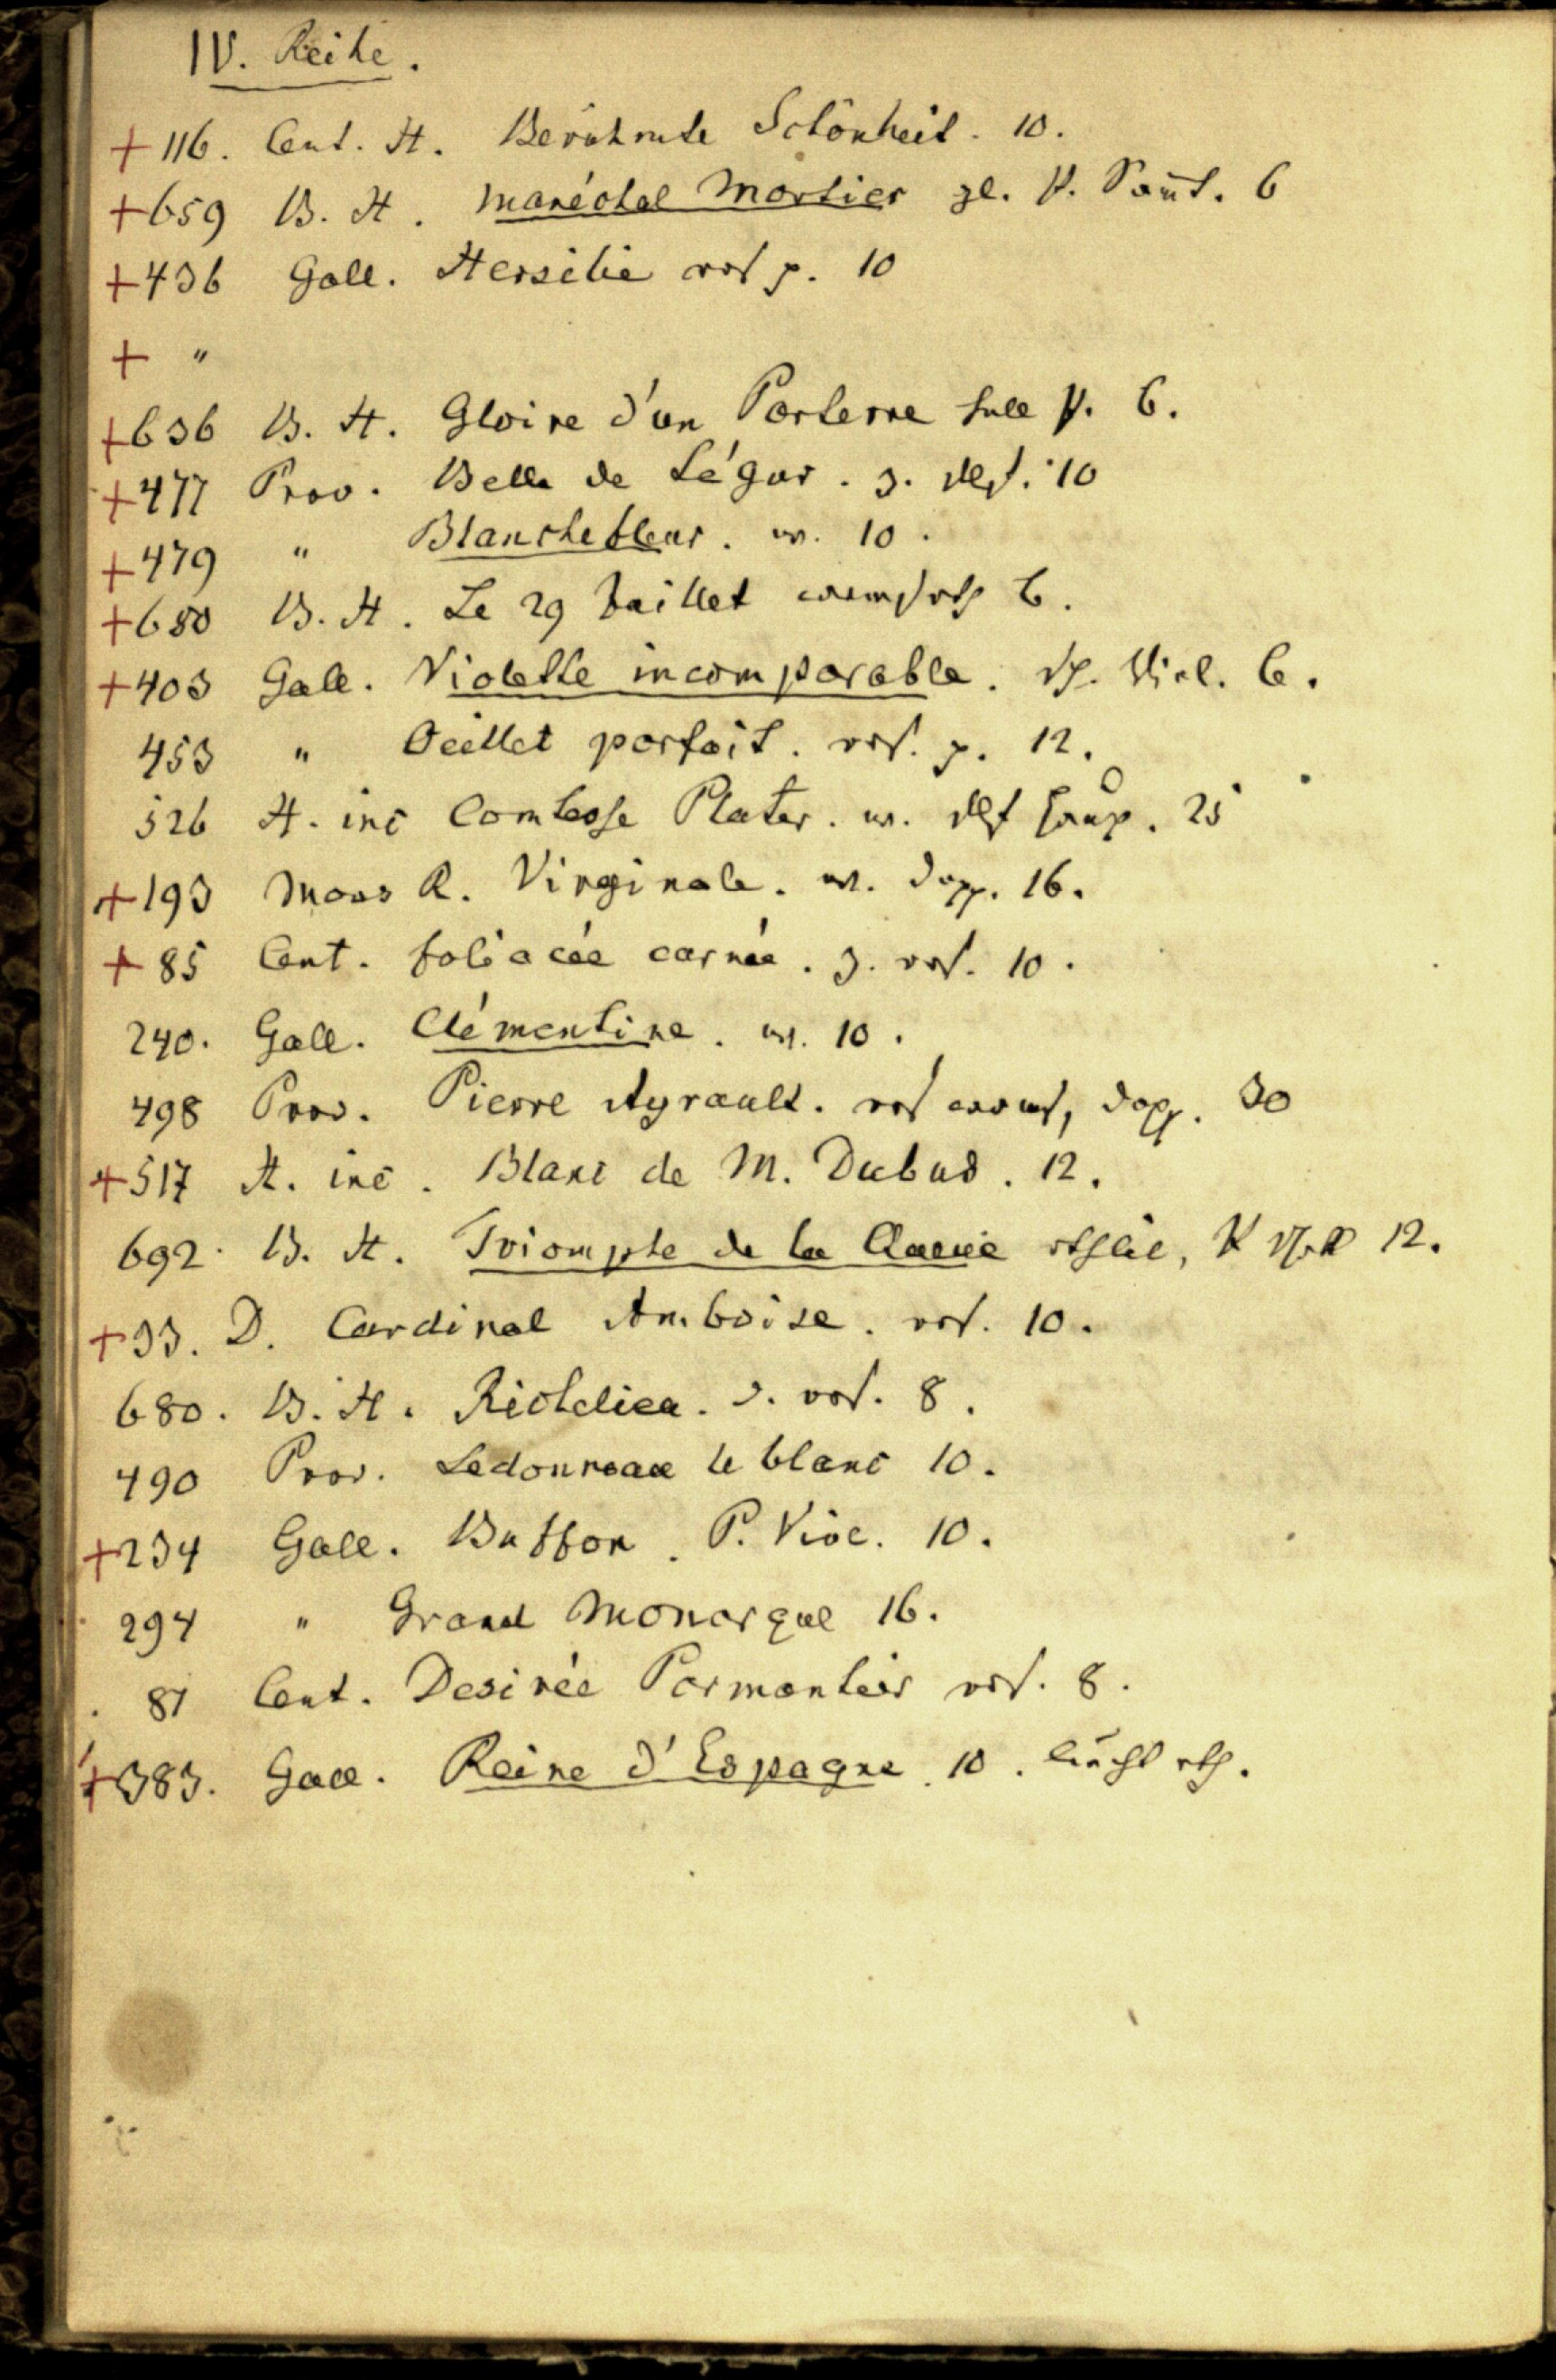 IV. Reihe.
+ 116. Cent. H. Berühmte Schönheit. 10.
+ 659 B. H. Maréchal Mortier gl. P. Samt. 6
+ 436 Gall. Hersilie ros p. 10
+ "
+ 636 B. H. Gloire d'un Parterre hell P. 6.
+ 477 Prov. Belle de Ségur. z. 10
+ 479 " Blanchefleur. w. 10.
+ 680 B. H. Le 29 Juillet 6.
+ 403 Gall. Violette incomparable. Viol. 6.
453 " Oeillet parfait. ros. p. 12.
526 H. inc Comtesse Plater. w. 25
+ 193 Moos R. Virginale. w. dopp. 16.
+ 85 Cent. foliacée carnée. z. ros. 10.
240. Gall. Clémentine. w. 10.
498 Prov. Pierre Ayrault. ros dopp. 30
+ 517 H. inc. Blanc de M. Dubud. 12.
692. B. H. Triomphe de la Queue 12.
+ 33. D. Cardinal Amboise. ros. 10.
680. B. H. Richelieu. d. ros. 8.
490 Prov. Ledonneau le blanc 10.
+ 234 Gall. Buffon. P. Viol. 10.
294 " Grand Monarque 16.
81 Cent. Desirée Parmentier ros. 8.
+ 383. Gall. Reine d'Espagne. 10. rth.